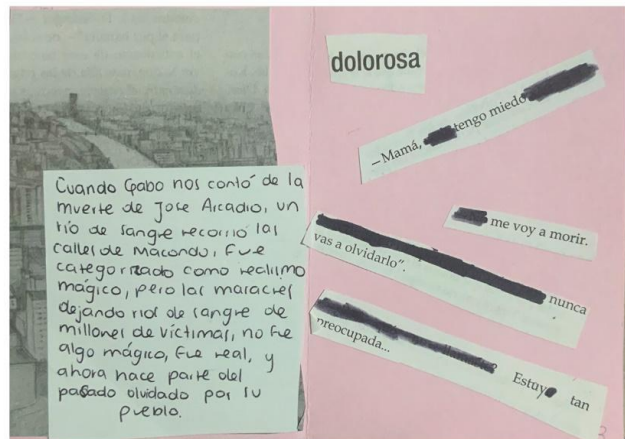 Cuando Gabo nos contó de la
muerte de Jose Arcadio, un
río de sangre recorrió las
calles de Macondo, Fue
categorizado como realismo
mágico, pero las masacres
dejando rios de sangre de
millones de víctimas, no fue
algo mágico, Fue real, y
ahora hace parte del
pasado olvidado por su
pueblo.
dolorosa
—Mamá, tengo miedo
me voy a morir.
nunca
vas a olvidarlo”.
Estuy tan
preocupada...